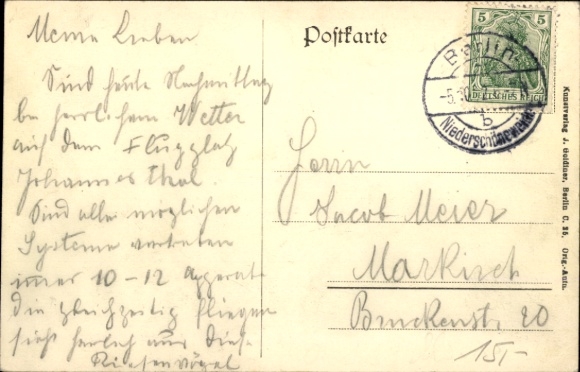 Meine Lieben
Sind heute Nachmittag
bei herrlichem Wetter
auf dem Flugplatz
Johannesthal.
Sind alle möglichen
Systeme vertreten
immer 10-12 Apparate
die gleichzeitig fliegen
sieht herlich aus diese
Riesenvögel
Postkarte
5 5
DEUTSCHES REICH
Berlin-
-5.10.
b
Niederschöneweide
Herrn
Jacob Meier
Markirch
Bruckenstr 20
15,-
Kunstverlag J. Goldiner, Berlin C. 25. Orig.-Aufn.